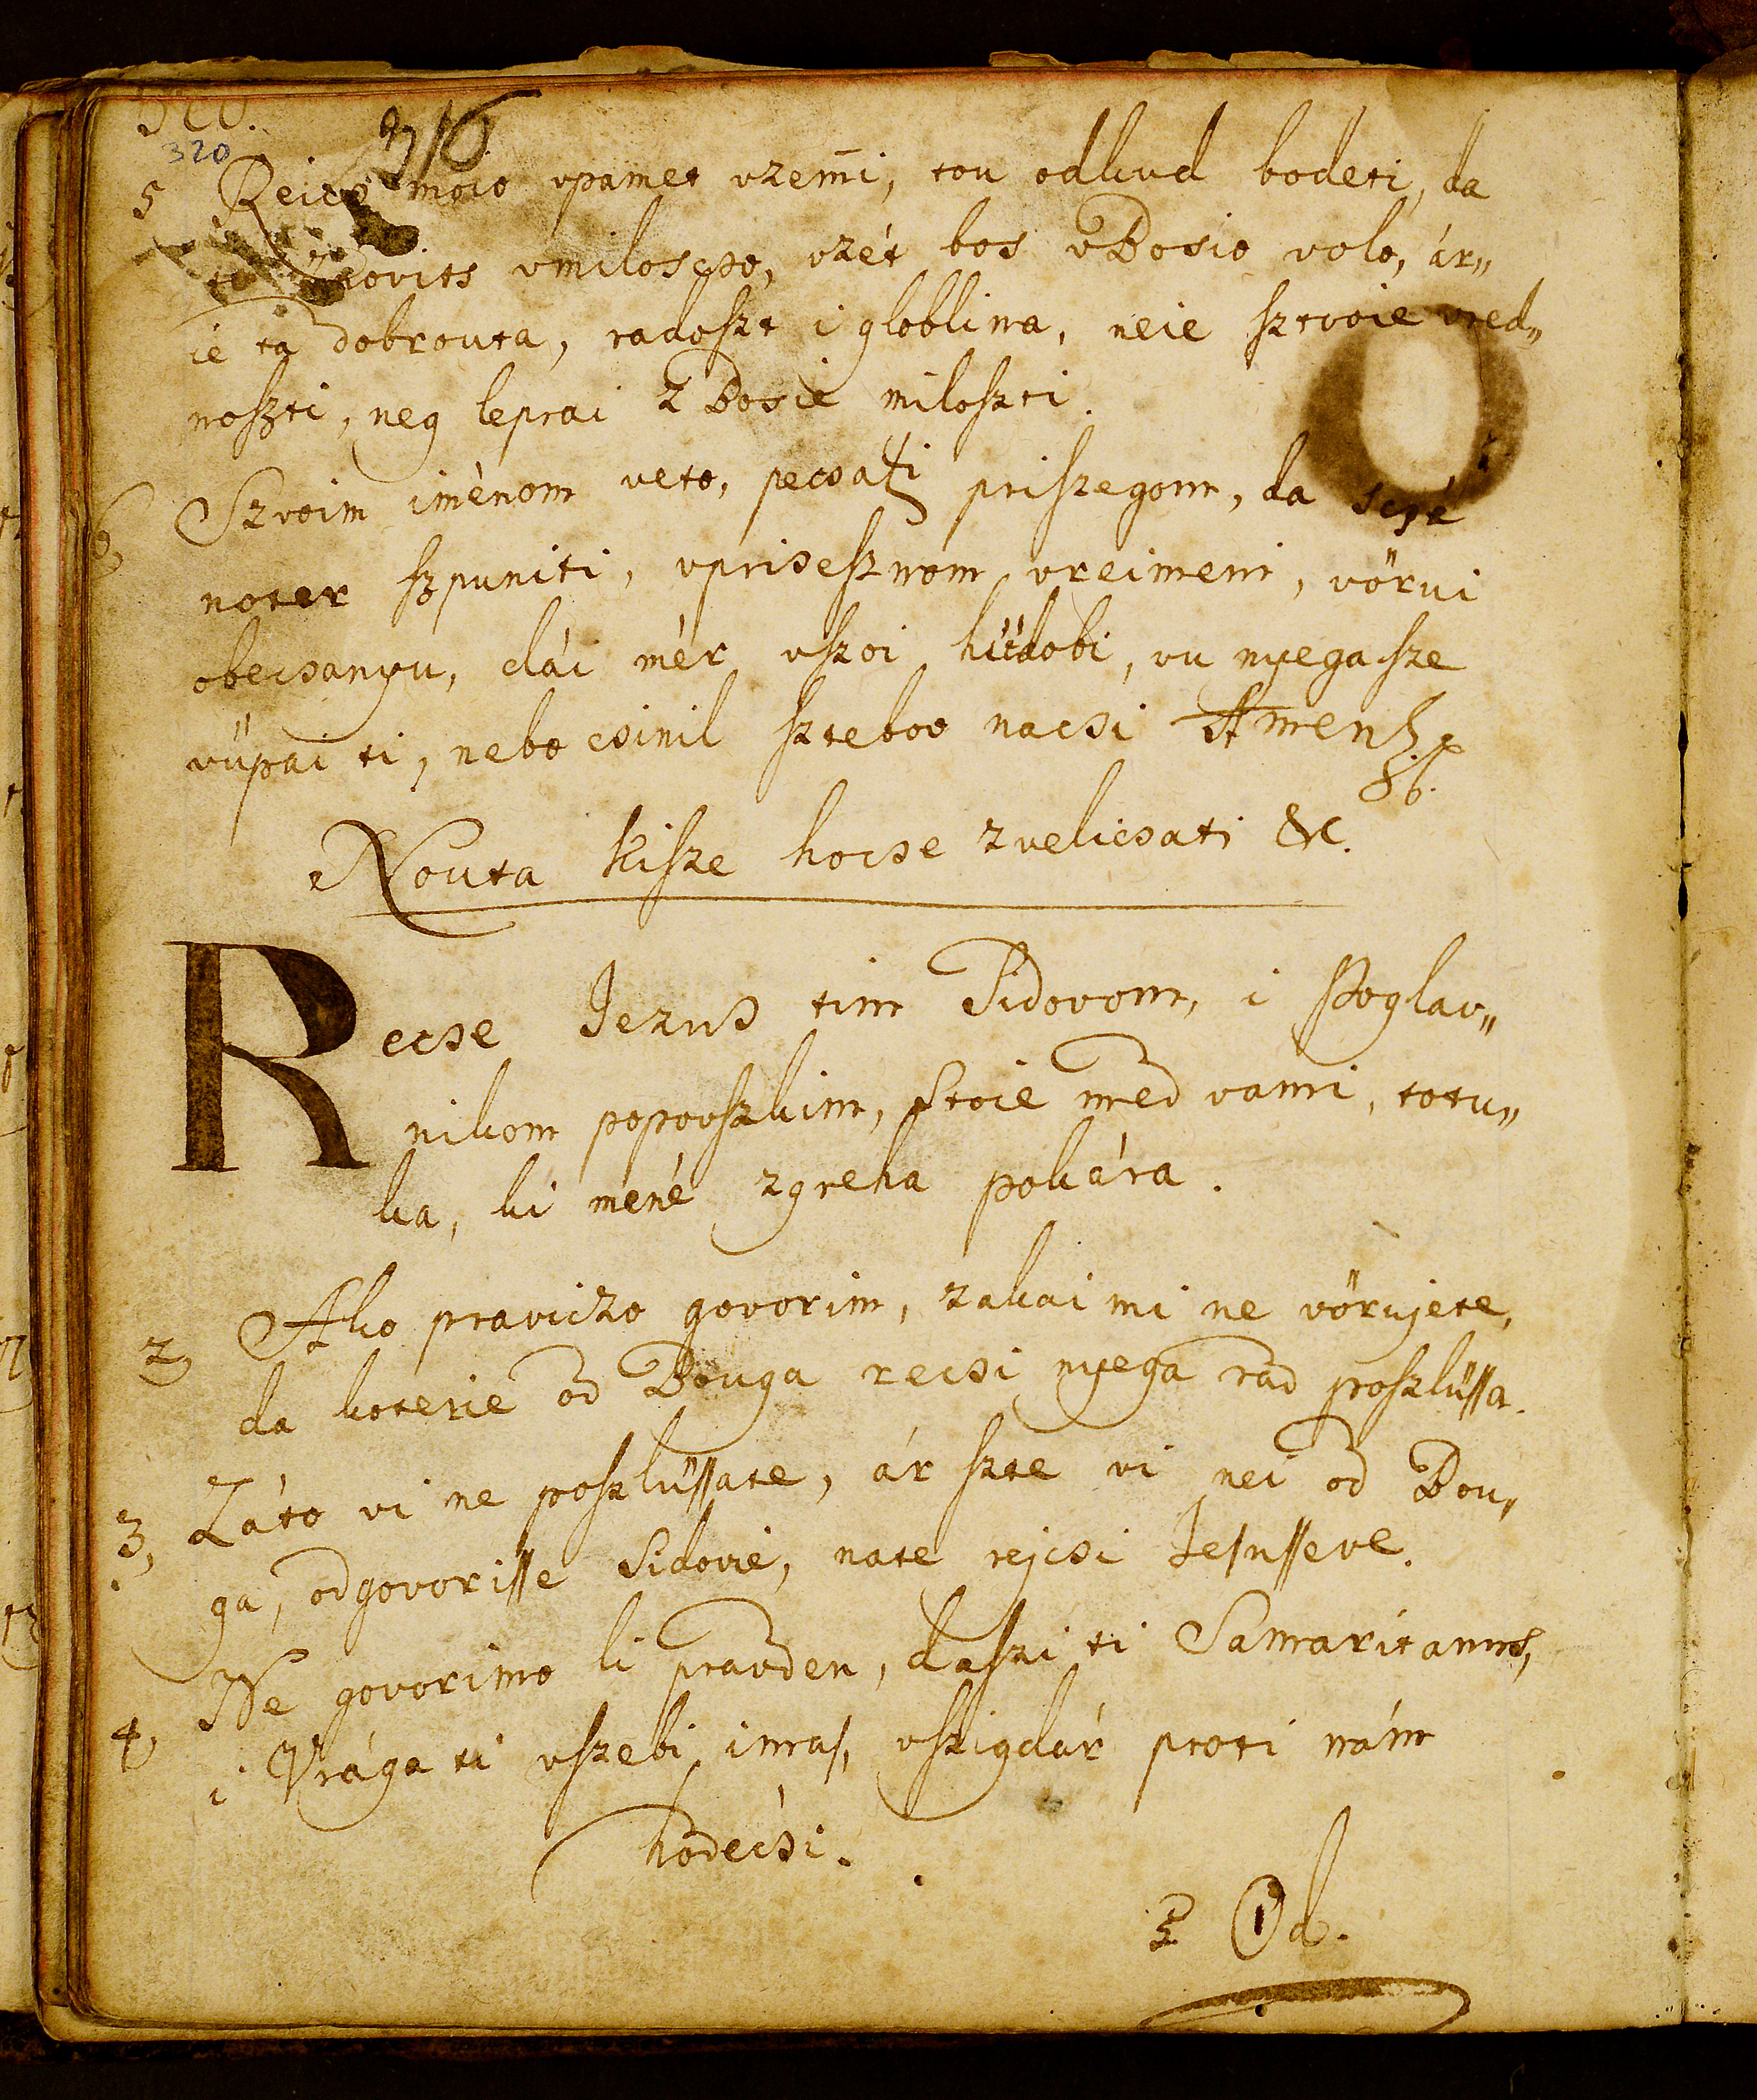 320
316
5 Reics moio vpamet vzemi, tou odkud bodeti, da
vmiloscso, vzét bos vBosio volo, ár„
ie ta dobrouta, radoszt i globlina, neie sztvoie vred„
noszti, neg leprai z Bosie miloszti.
6, Szvoim iménom veto, pecsati priszegom, da scsé
noter szpuniti, vprisesznom vreimeni, vörui
obecsanyu, dái mér vszoi hüdobi, vu nyega sze
vüpai ti, nebo csinil szteboo nacsi Amen
Nouta kisze hocse zvelicsati &c.
Recse Jezus tim Sidovom, i Poglav„
nikom popovszkim, Stoie med vami, totu„
ka, ki mené zgreha pokára.
2, Ako praviczo govorim, zakai mi ne vörujete,
da koterie od Bouga recsi nyega rad poszlüssa.
3, Záto vi ne poszlüssate, ár szte vi nei od Bou„
ga, odgovorisse Sidovie, nate rejcsi Jesusseve.
4, Ne govorimo li pravden, daszi ti Samaritanus,
i Vrága ti vszebi imas, vszigdár proti nám
hodécsi.
5 Od.